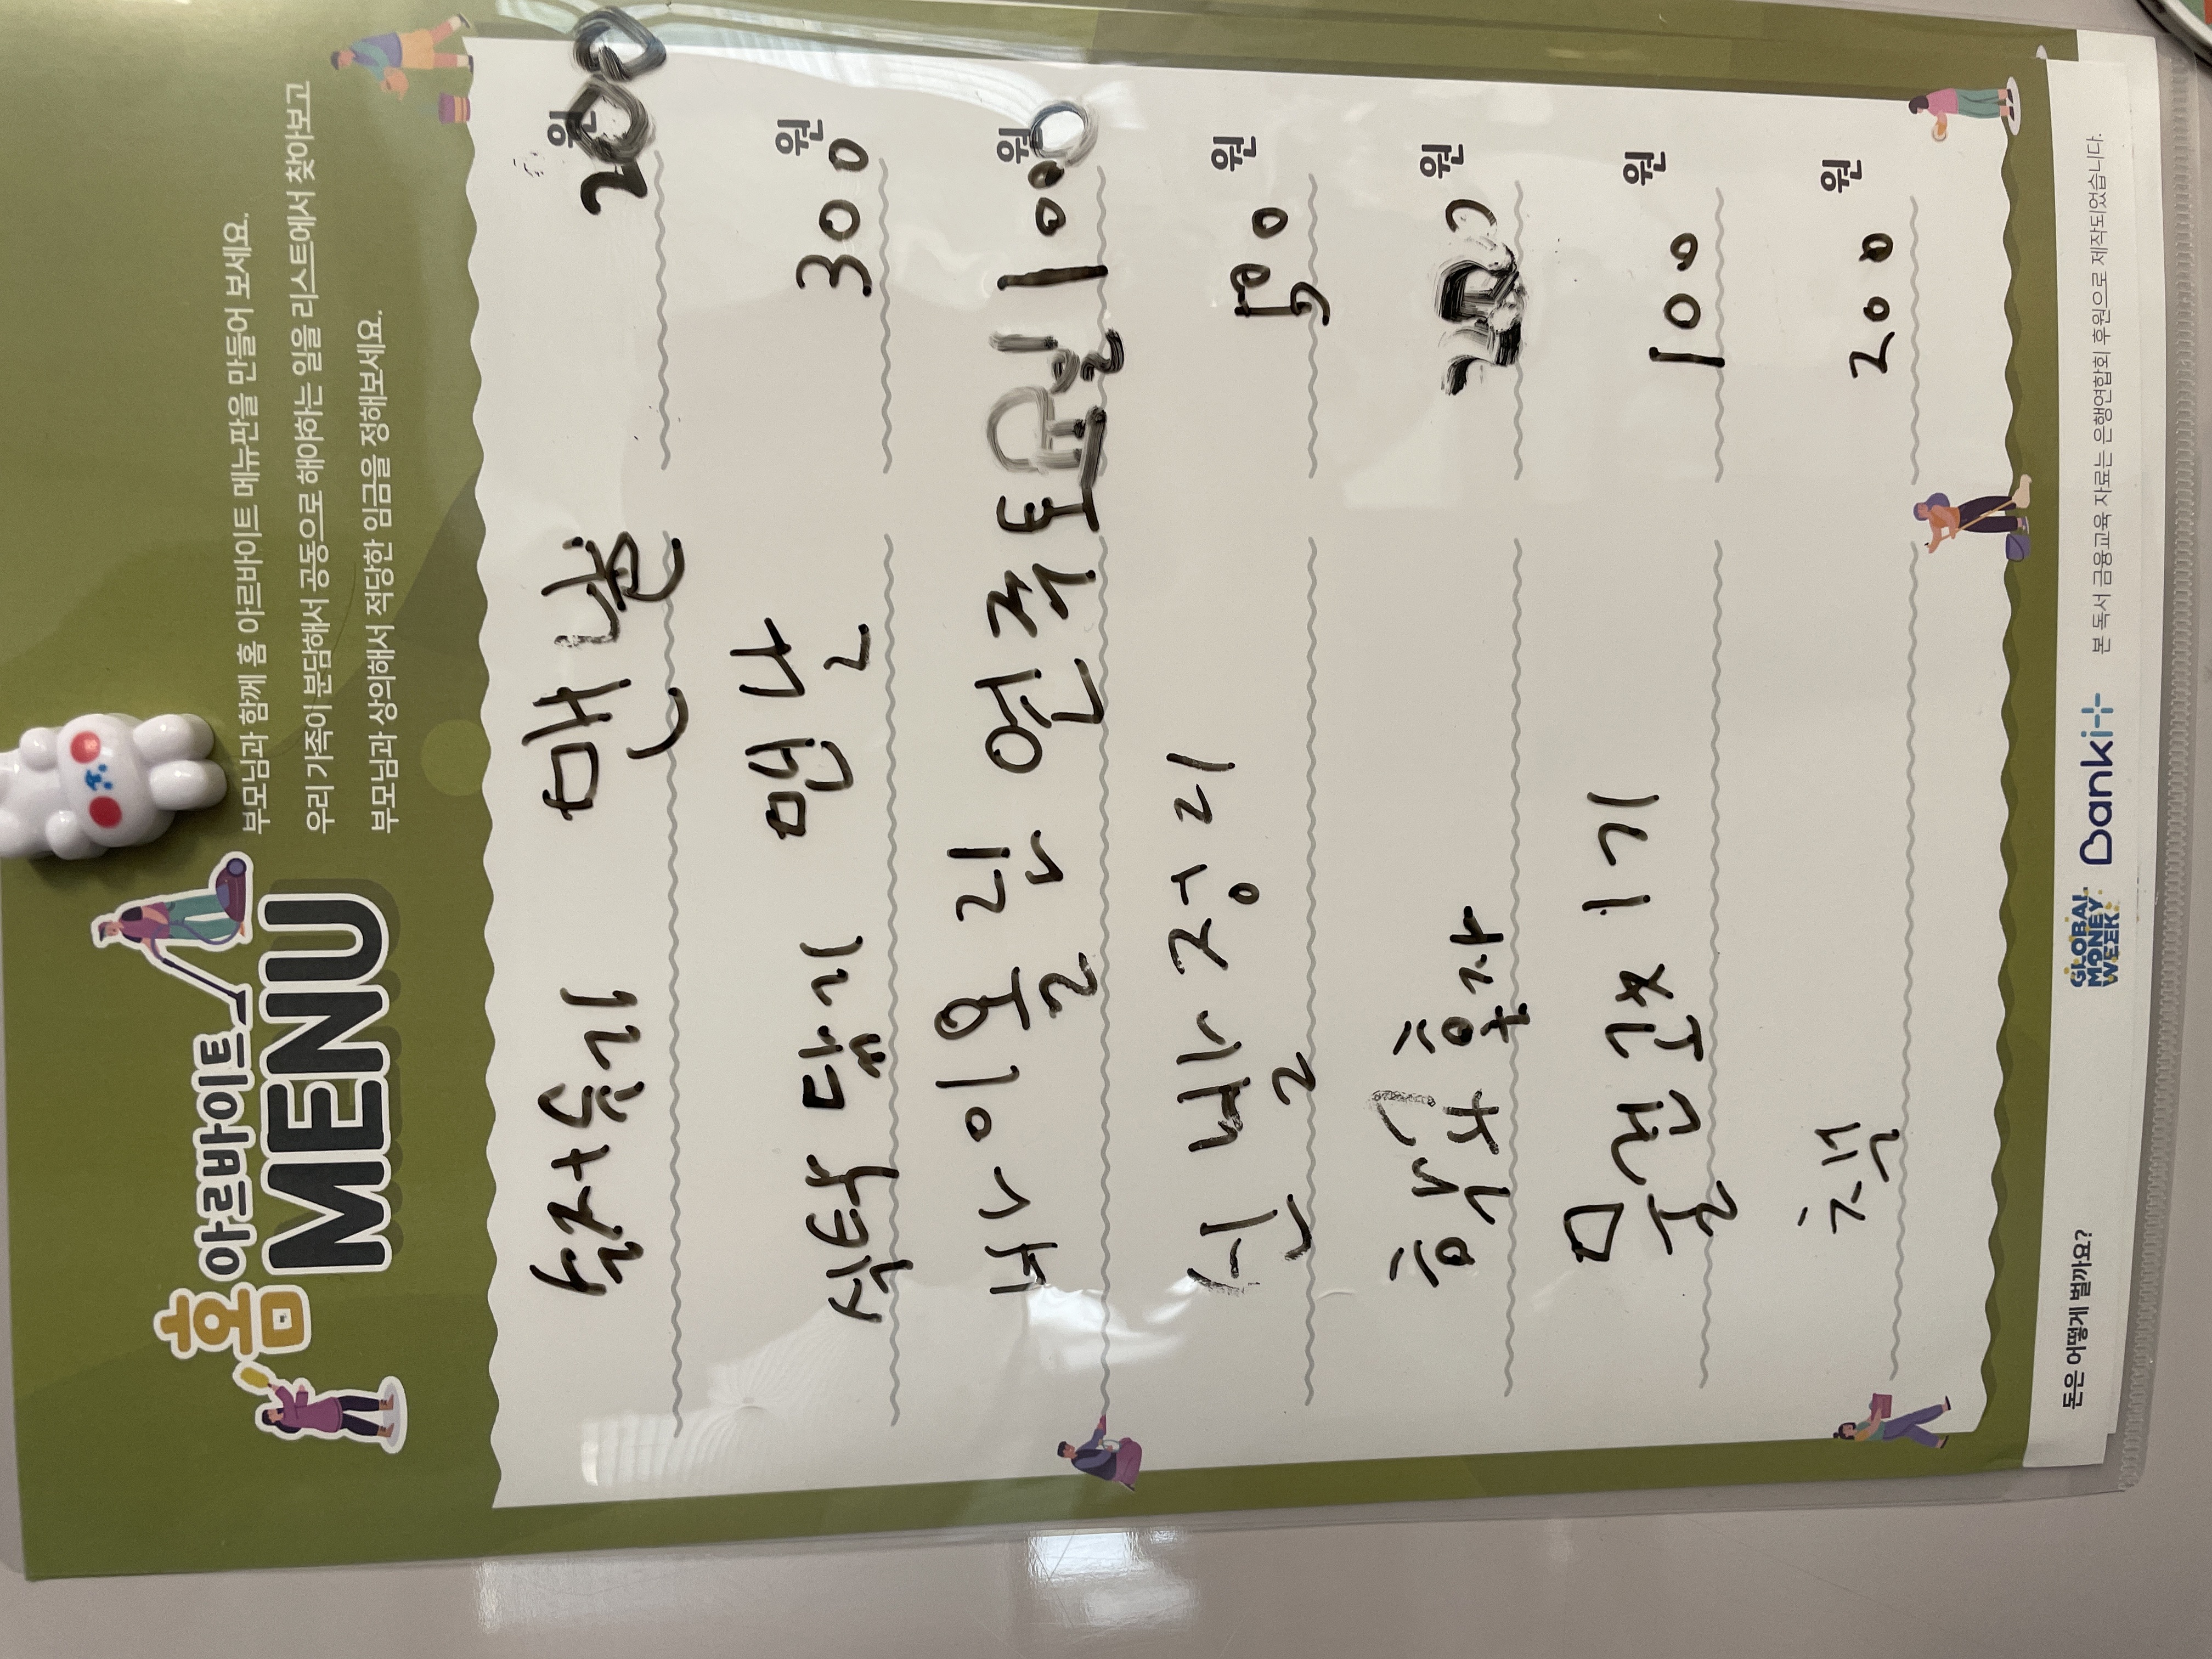 홈 아르바이트
MENU
부모님과 함께 홈 아르바이트 메뉴판을 만들어 보세요.
우리 가족이 분담해서 공동으로 해야하는 일을 리스트에서 찾아보고
부모님과 상의해서 적당한 임금을 정해보세요.
맨날 200 원
닦기 300 원
바이올린 연주 토요일 1000 원
신발 정리 500 원
혼자 원
100 원
책 200 원
돈은 어떻게 벌까요? GLOBAL MONEY WEEK Banki 본 독서 금융교육 자료는 은행연합회 후원으로 제작되었습니다.